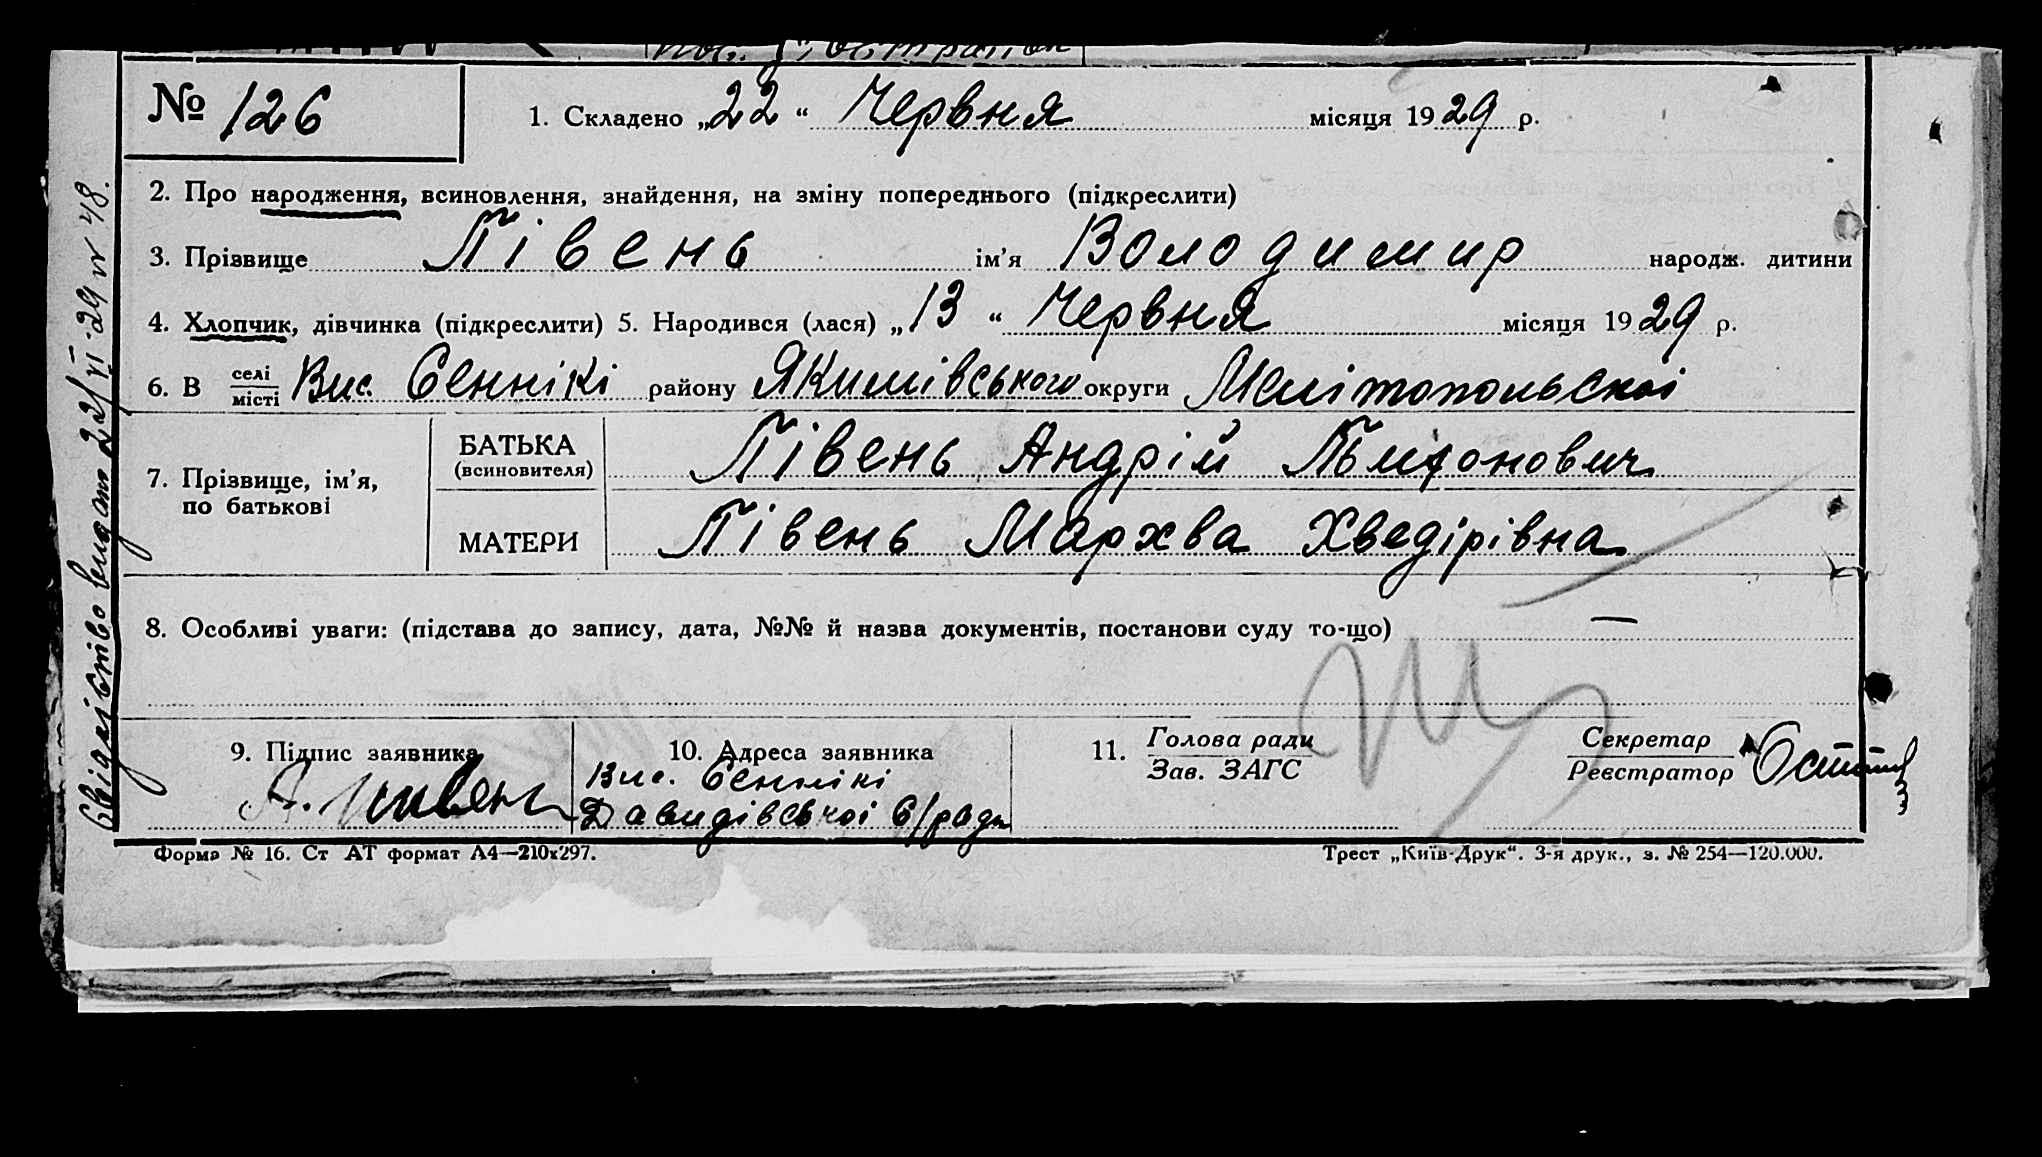 № 126
1. Складено „22“ Червня місяця 1929 р.
2. Про народження, всиновлення, знайдення, на зміну попереднього (підкреслити)
3. Прізвище Півень ім'я Володимир народж. дитини
4. Хлопчик, дівчинка (підкреслити) 5. Народився (лася) „13“ Червня місяця 1929 р.
6. В селі/місті Вис. Сеннікі району Якимівського округи Мелітопольскої
7. Прізвище, ім'я, по батькові
БАТЬКА (всиновителя) Півень Андрій
МАТЕРИ Півень Мархва Хведірівна
8. Особливі уваги: (підстава до запису, дата, №№ й назва документів, постанови суду то-що) —
9. Підпис заявника
А. Пивень
10. Адреса заявника
Вис. Сеннікі
Давидівської с/ради
11. Голова ради
Зав. ЗАГС
Секретар
Реєстратор
Форма № 16. Ст АТ формат А4—210х297.
Трест „Київ-Друк“. 3-я друк., з. № 254—120.000.
Свідоцтво видат 22/VI-29 № 48.